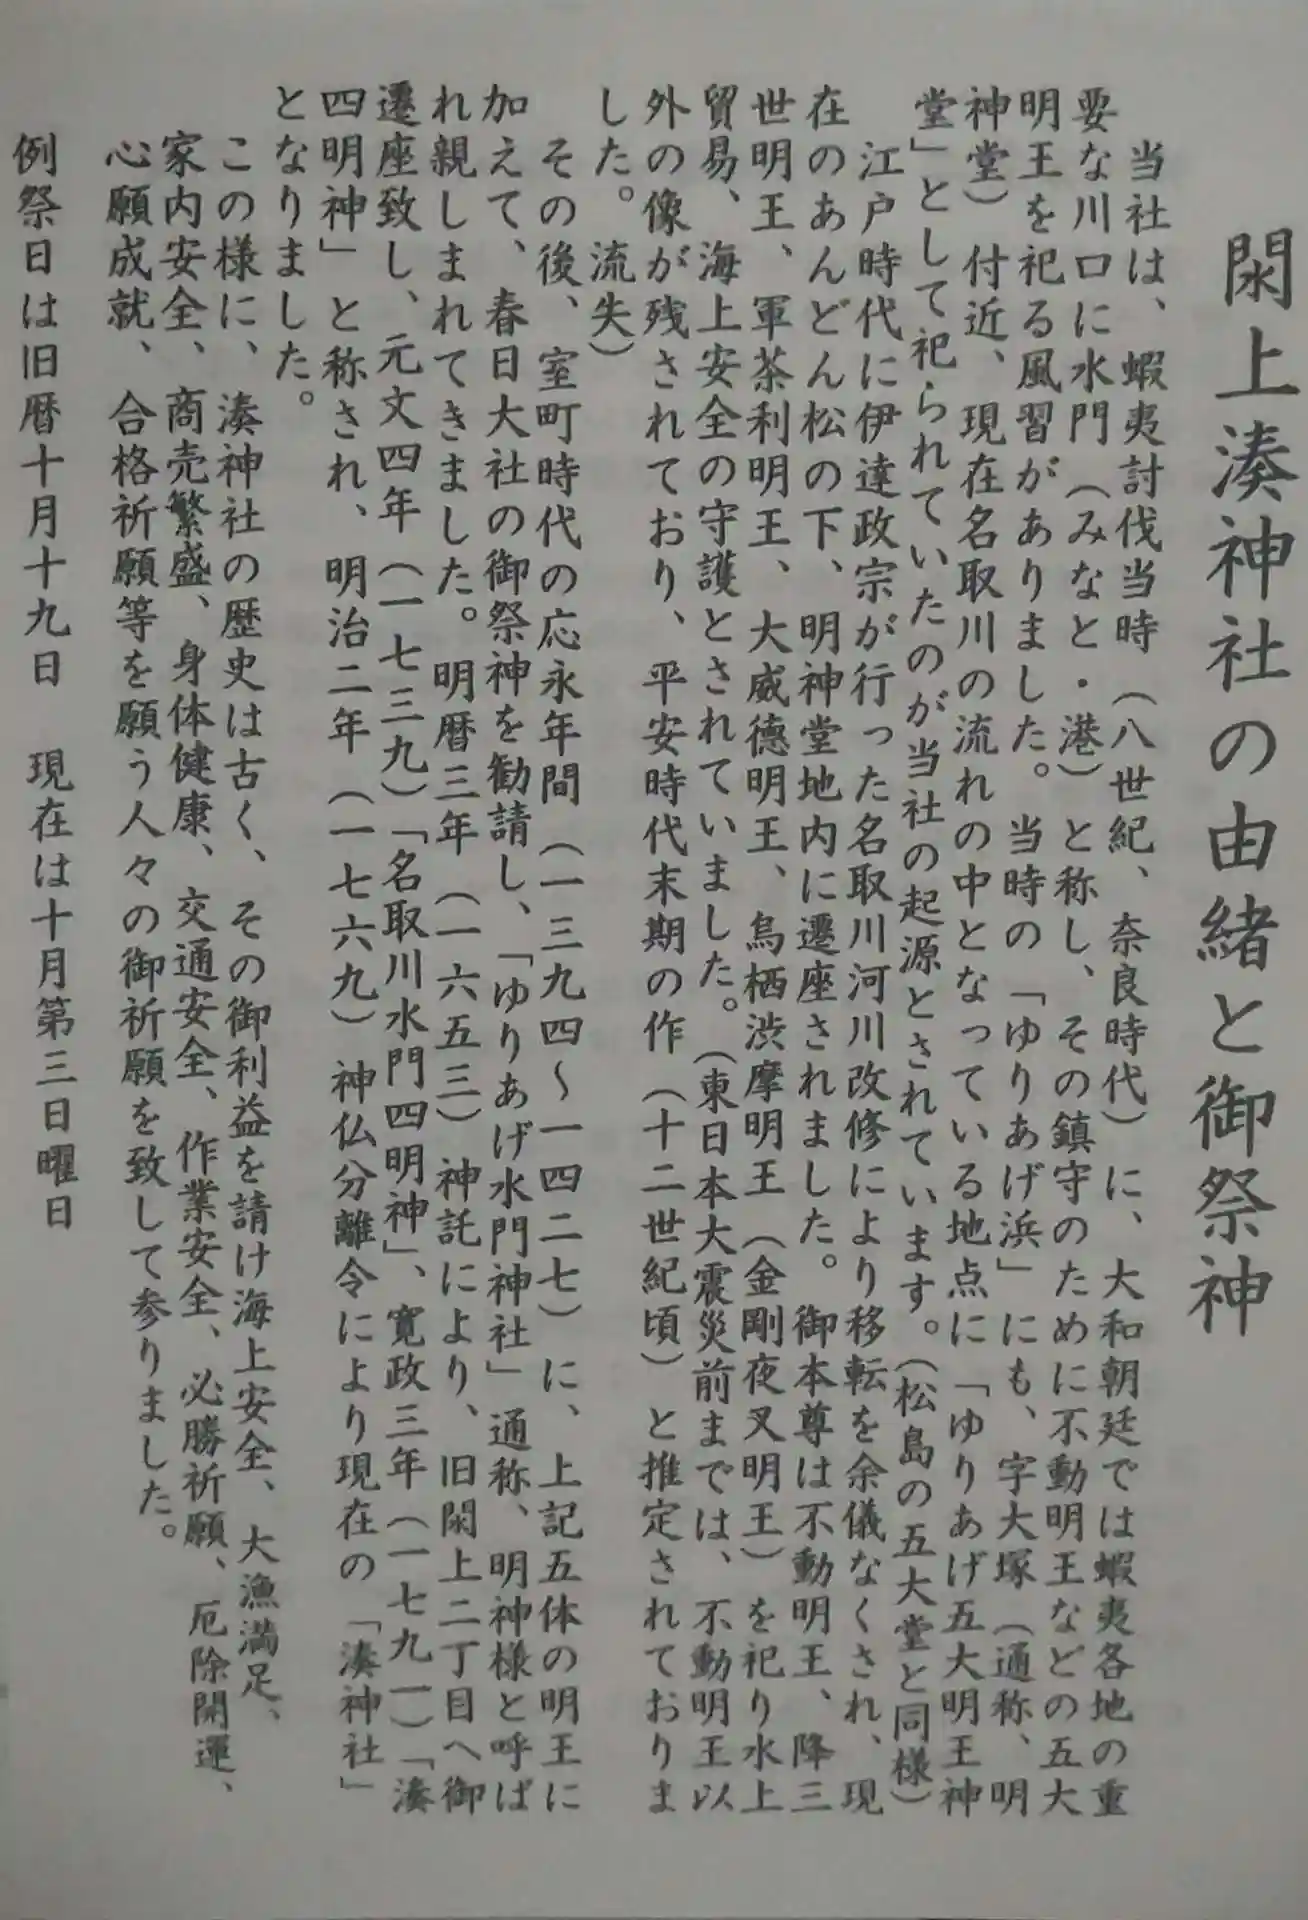 閖上湊神社の由緒と御祭神
当社は、蝦夷討伐当時（八世紀、奈良時代）に、大和朝廷では蝦夷各地の重
要な川口に水門（みなと・港）と称し、その鎮守のために不動明王などの五大
明王を祀る風習がありました。当時の「ゆりあげ浜」にも、字大塚（通称、明
神堂）付近、現在名取川の流れの中となっている地点に「ゆりあげ五大明王神
堂」として祀られていたのが当社の起源とされています。（松島の五大堂と同様）
江戸時代に伊達政宗が行った名取川河川改修により移転を余儀なくされ、現
在のあんどん松の下、明神堂地内に遷座されました。御本尊は不動明王、降三
世明王、軍茶利明王、大威徳明王、烏栖渋摩明王（金剛夜叉明王）を祀り水上
貿易、海上安全の守護とされていました。（東日本大震災前までは、不動明王以
外の像が残されており、平安時代末期の作（十二世紀頃）と推定されておりま
した。流失）
その後、室町時代の応永年間（一三九四～一四二七）に、上記五体の明王に
加えて、春日大社の御祭神を勧請し、「ゆりあげ水門神社」通称、明神様と呼ば
れ親しまれてきました。明暦三年（一六五三）神託により、旧閖上二丁目へ御
遷座致し、元文四年（一七三九）「名取川水門四明神」、寛政三年（一七九一）「湊
四明神」と称され、明治二年（一七六九）神仏分離令により現在の「湊神社」
となりました。
この様に、湊神社の歴史は古く、その御利益を請け海上安全、大漁満足、
家内安全、商売繁盛、身体健康、交通安全、作業安全、必勝祈願、厄除開運、
心願成就、合格祈願等を願う人々の御祈願を致して参りました。
例祭日は旧暦十月十九日　現在は十月第三日曜日